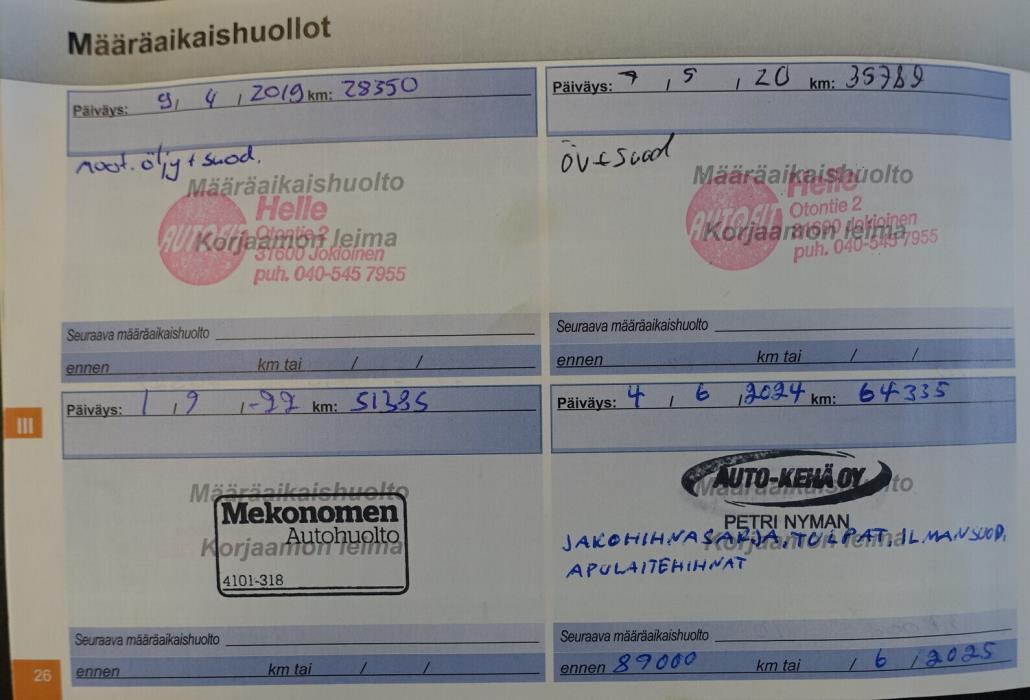 Määräaikaishuollot
Päiväys: 9, 4, 2019 km: 28350
moot. öljy + suod.
Määräaikaishuolto
Korjaamon leima
AUTOFIT
Helle
Otontie 2
31600 Jokioinen
puh. 040-545 7955
Seuraava määräaikaishuolto
ennen km tai / /
Päiväys: 7, 5, 20 km: 35789
ÖV+Suod
Määräaikaishuolto
Korjaamon leima
AUTOFIT
Helle
Otontie 2
31600 Jokioinen
puh. 040-545 7955
Seuraava määräaikaishuolto
ennen km tai / /
Päiväys: 1, 9, -22 km: 51385
Määräaikaishuolto
Korjaamon leima
Mekonomen
Autohuolto
4101-318
Seuraava määräaikaishuolto
ennen km tai / /
Päiväys: 4, 6, 2024 km: 64335
Määräaikaishuolto
Korjaamon leima
AUTO-KEHÄ OY
PETRI NYMAN
JAKOHIHNASARJA, TULPAT, ILMANSUOD,
APULAITEHIHNAT
Seuraava määräaikaishuolto
ennen 89000 km tai / 6 / 2025
III
26